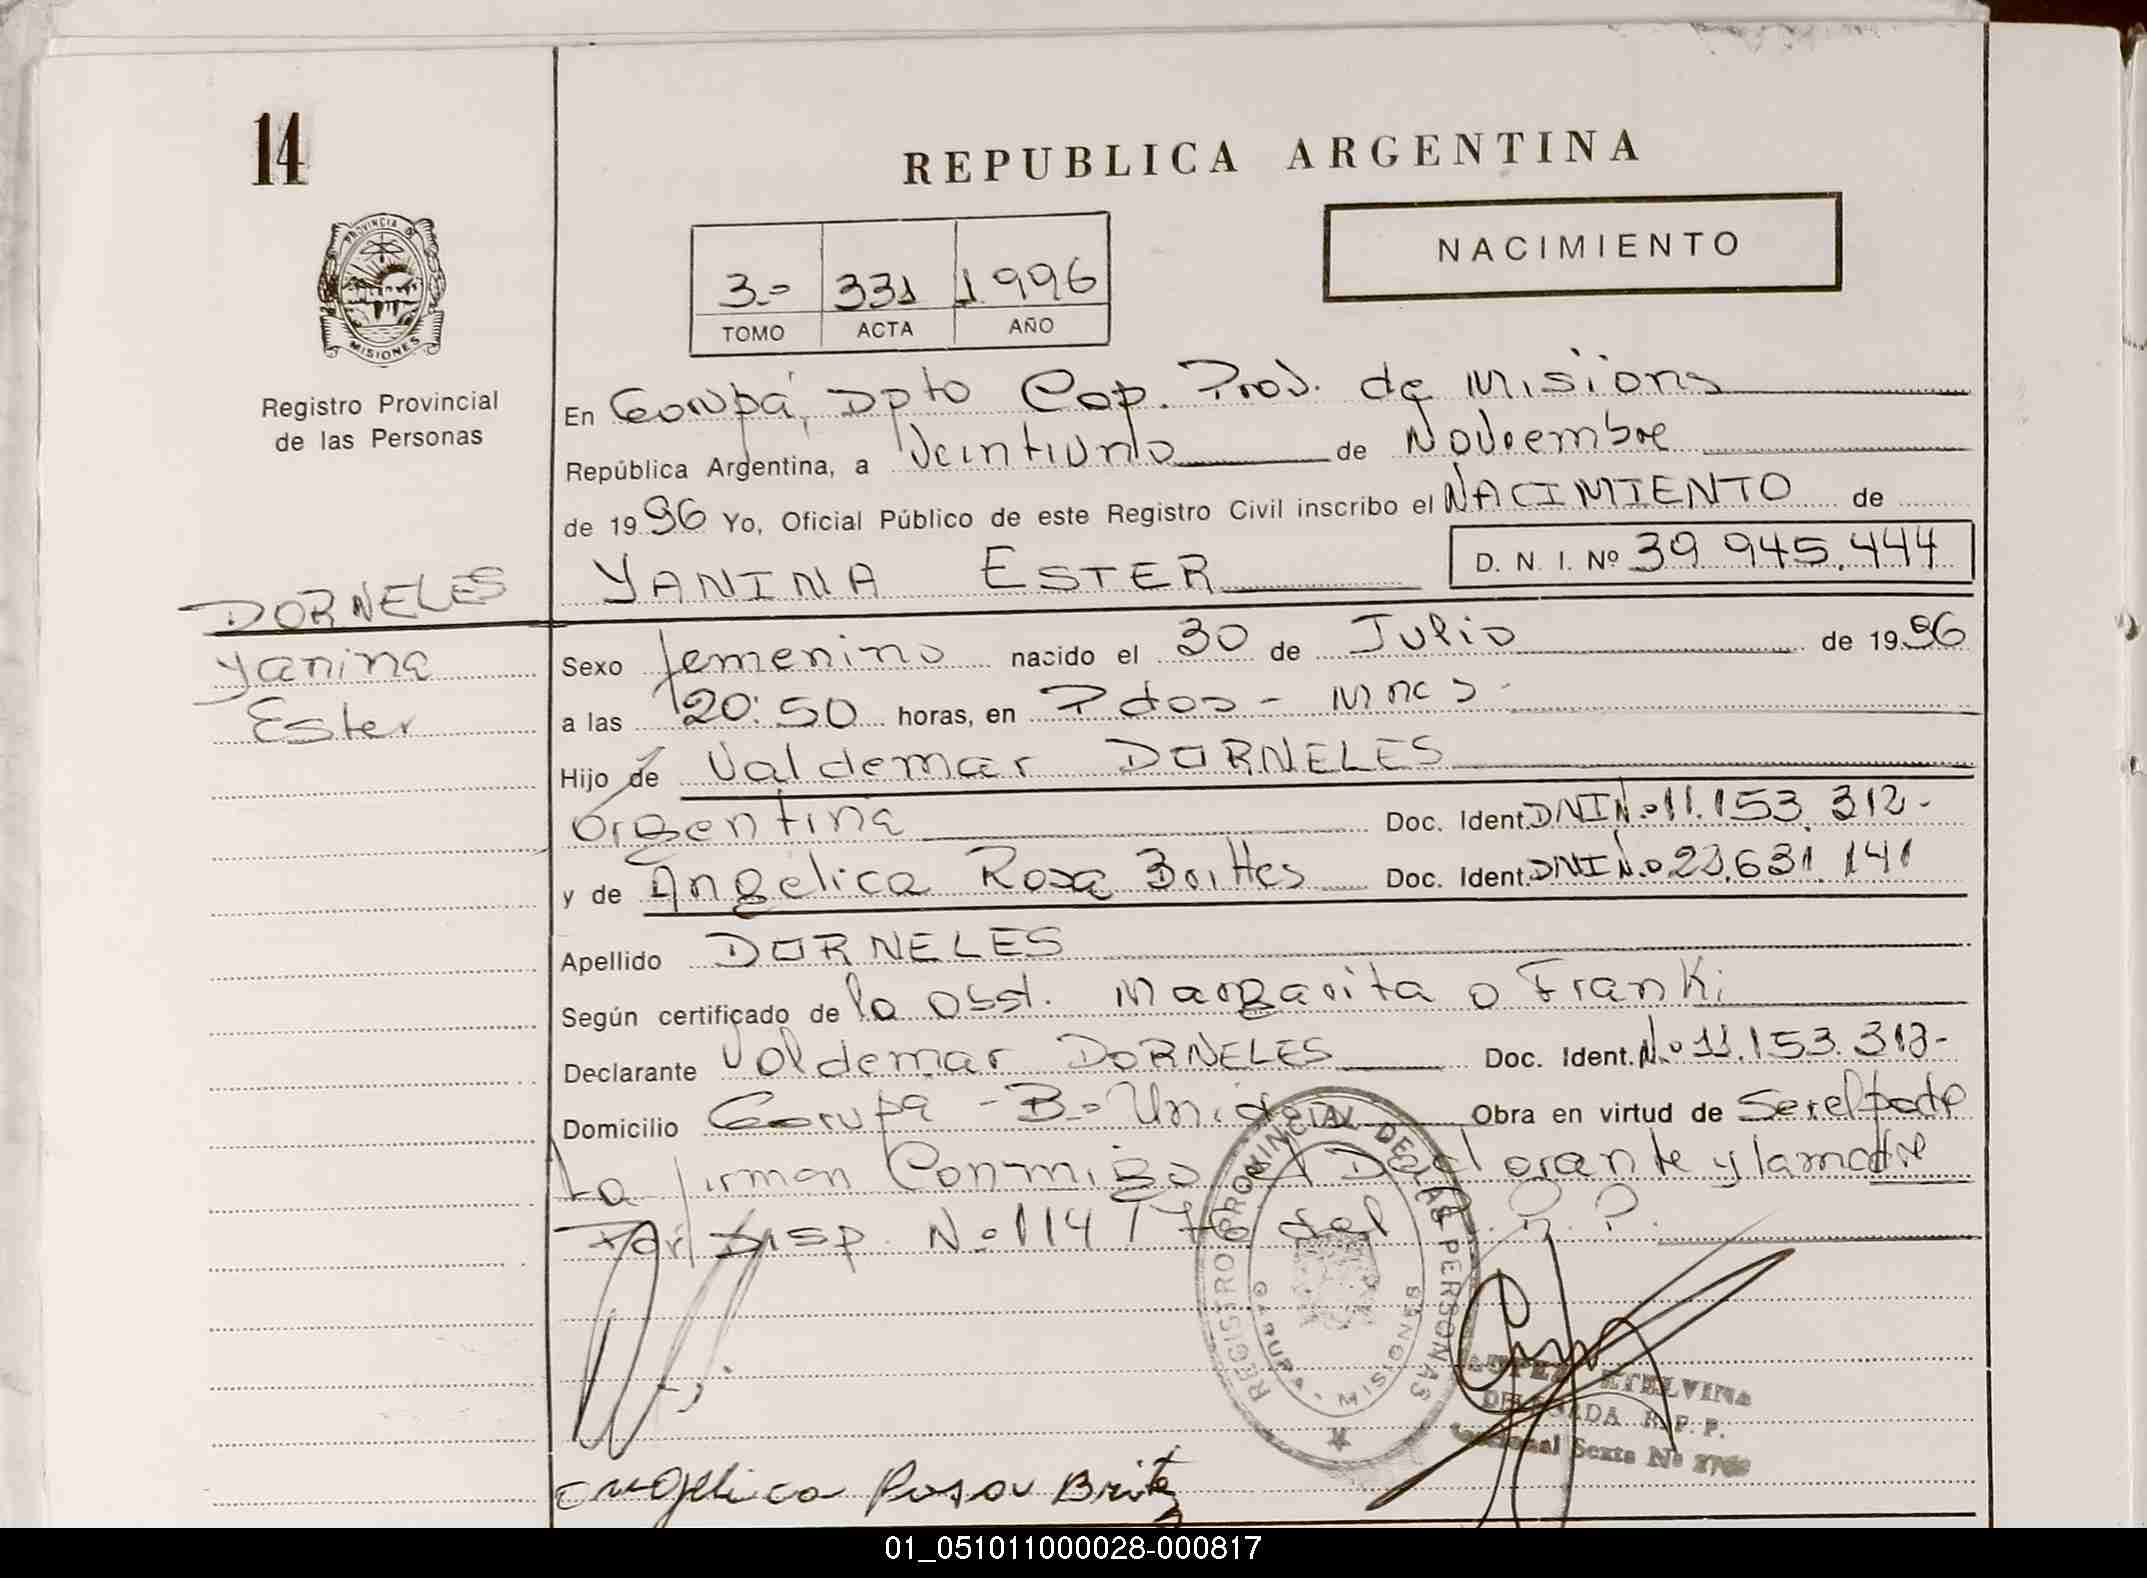 14
REPUBLICA ARGENTINA
PROVINCIA DE
MISIONES
Registro Provincial
de las Personas
NACIMIENTO
3.º 331 1996
TOMO ACTA AÑO
En Garupá, Dpto Cap. Prov. de Misions
República Argentina, a Veintiuno de Noviembre
de 1996 Yo, Oficial Público de este Registro Civil inscribo el NACIMIENTO de
YANINA ESTER D. N. I. Nº 39 945.444
DORNELES
Yanina
Ester
Sexo femenino nacido el 30 de Julio de 1996
a las 20:50 horas, en Pdas - Mnes -
Hijo de Valdemar DORNELES
Argentina Doc. Ident. DNI Nº 11.153.312-
y de Angelica Rosa Brittes Doc. Ident. DNI Nº 23.631.141
Apellido DORNELES
Según certificado de la obst. Margarita O Franki
Declarante Valdemar DORNELES Doc. Ident. Nº 11.153.312-
Domicilio Garupá - Bº Unidem Obra en virtud de Ser el padre
La firman Conmigo el Declarante y la madre
Por Disp. Nº 114/76 del R. P.
REGISTRO PROVINCIAL DE LAS PERSONAS
GARUPA - MISIONES
ETELVINA
DELEGADA R. P. P.
Sexta Nº
Angelica Rosa Britez
01_051011000028-000817